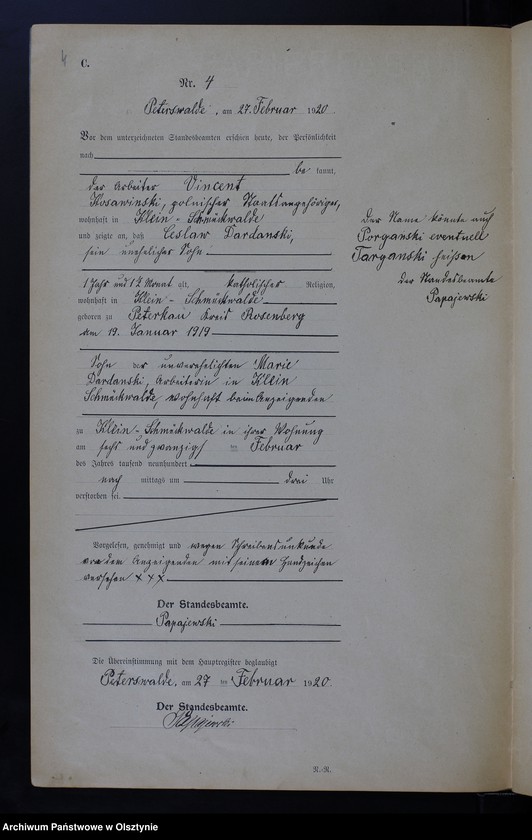 4
C.
Nr. 4
Peterswalde, am 27. Februar 1920
Vor dem unterzeichneten Standesbeamten erschien heute, der Persönlichkeit
nach
be kannt,
der Arbeiter Vincent
Kosawinski, polnischer Staatsangehöriger,
wohnhaft in Klein-Schmückwalde
und zeigte an, daß Ceslaw Dardanski,
sein unehelicher Sohn
1 Jahr und 1 2 Monat alt, katholischer Religion,
wohnhaft in Klein-Schmückwalde
geboren zu Peterkau Kreis Rosenberg
am 19. Januar 1919
Sohn der unverehelichten Marie
Dardanski, Arbeiterin in Klein
Schmückwalde, wohnhaft beim Anzeigenden
zu Klein-Schmückwalde in ihrer Wohnung
am sechs und zwanzig ten Februar
des Jahres tausend neunhundert
nach mittags um drei Uhr
verstorben sei.
Vorgelesen, genehmigt und wegen Schreibensunkunde
von dem Anzeigenden mit seinem Handzeichen
versehen x x x
Der Standesbeamte.
Papajewski
Die Übereinstimmung mit dem Hauptregister beglaubigt
Peterswalde, am 27 ten Februar 1920
Der Standesbeamte.
Papajewski
R.-R.
Der Name könnte auch
Porganski eventuell
Targanski heissen
Der Standesbeamte
Papajewski
Archiwum Państwowe w Olsztynie